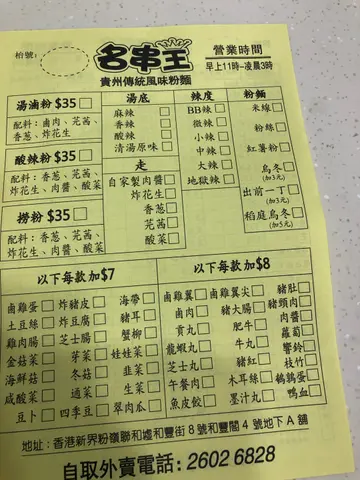 枱號:
名串王
貴州傳統風味粉麵
營業時間
早上11時-凌晨3時
湯滷粉 $35
配料: 鹵肉、芫茜、香葱、炸花生
酸辣粉 $35
配料: 香葱、芫茜、炸花生、肉醬、酸菜
撈粉 $35
配料: 香葱、芫茜、炸花生、肉醬、酸菜
湯底
麻辣
香辣
酸辣
清湯原味
走
自家製肉醬
炸花生
香葱
芫茜
酸菜
辣度
BB辣
微辣
小辣
中辣
大辣
地獄辣
粉麵
米線
粉絲
紅薯粉
烏冬
(加3元)
出前一丁
(加3元)
稻庭烏冬
(加5元)
以下每款加$7
鹵雞蛋 炸豬皮 海帶
土豆絲 炸豆腐 豬耳
雞肉腸 芝士腸 蟹柳
金菇菜 芽菜 娃娃菜
海鮮菇 冬菇 韭菜
咸酸菜 通菜 生菜
豆卜 四季豆 翠肉瓜
以下每款加$8
鹵雞翼 鹵雞翼尖 豬肚
鹵肉 豬大腸 豬頸肉
貢丸 肥牛 肉醬
龍蝦丸 牛丸 蘿蔔
芝士丸 豬紅 響鈴
午餐肉 木耳絲 枝竹
魚皮餃 墨汁丸 鵪鶉蛋
鴨血
地址: 香港新界粉嶺聯和墟和豐街8號和豐閣4號地下A舖
自取外賣電話: 2602 6828